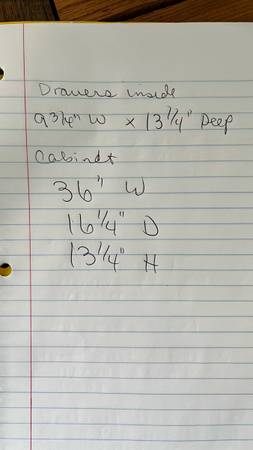 Drawers inside
9 3/4" W x 13 1/4" Deep
Cabinet
36" W
16 1/4" D
13 1/4" H